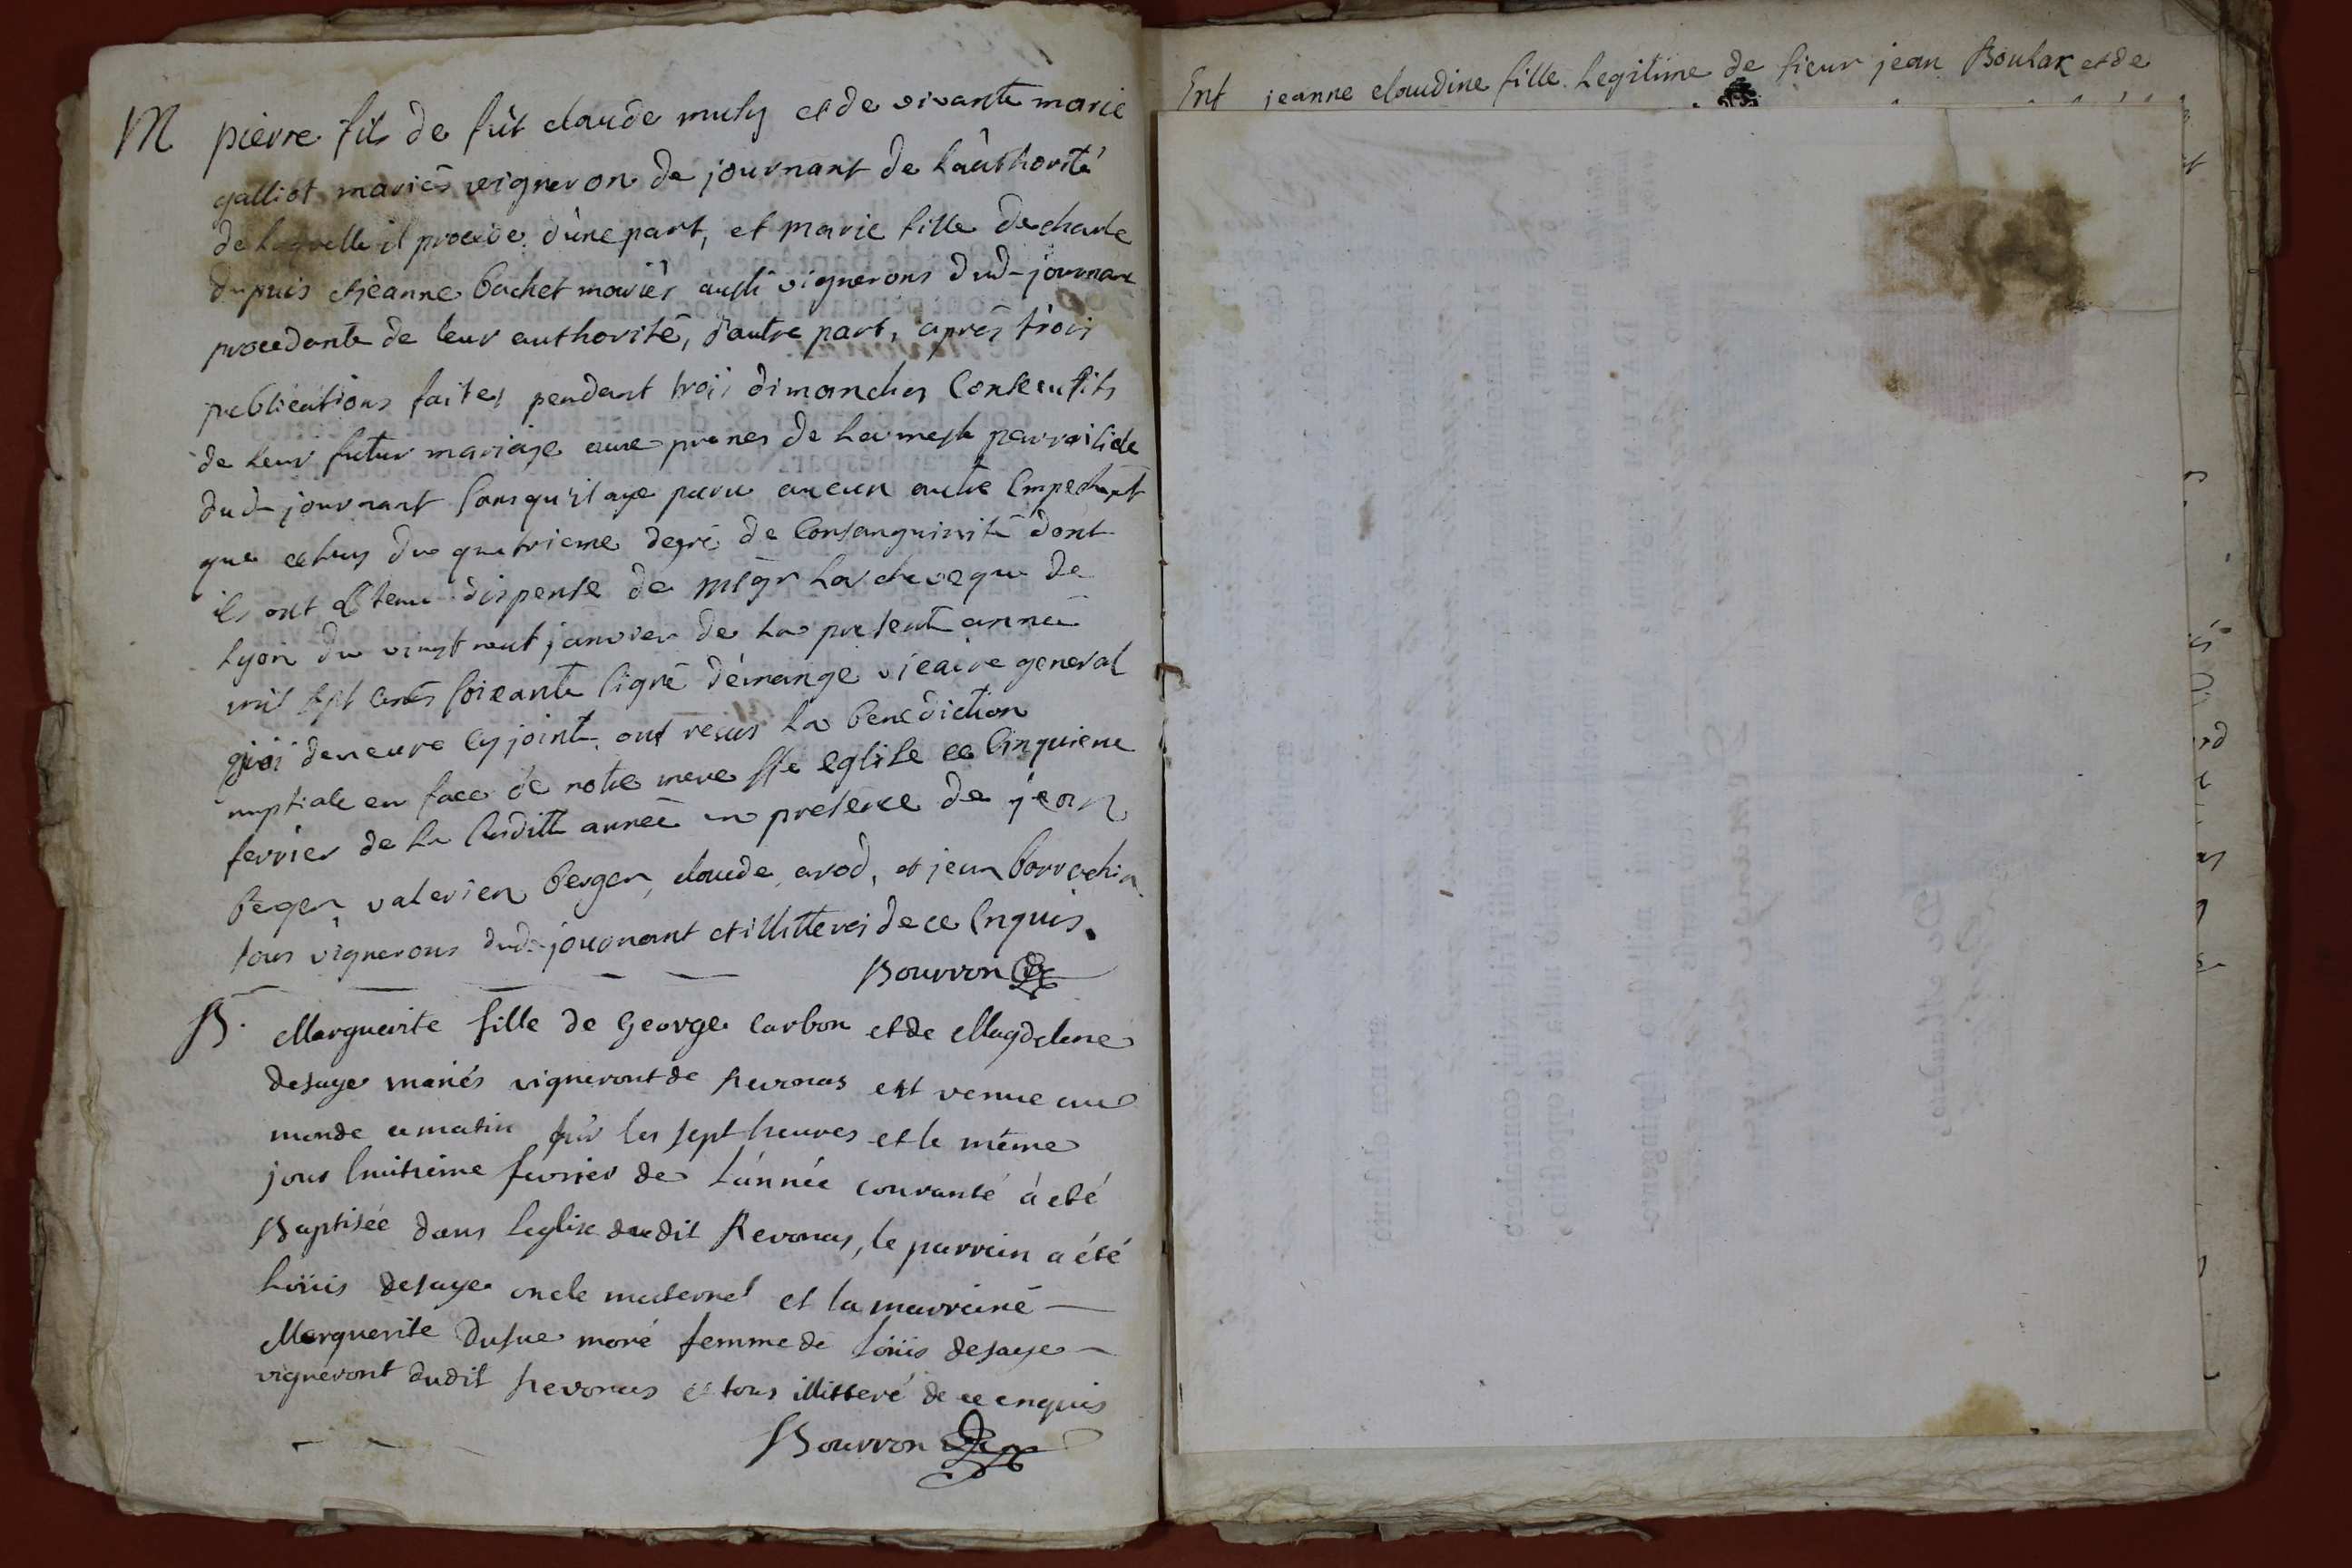 M pierre fils de fut claude muty et de vivante marie
galliot mariés vigneron de journant de l'authorité
de laquelle il procede d'une part, et marie fille de charle
dupuis et jeanne bachet mariés aussi vignerons dud journan
procedante de leur authorité, d'autre part, après trois
publications faites pendant trois dimanches Consecutifs
de leur futur mariage aux prones de la messe parroisiale
dud journant sans qu'il aye paru aucun autre Empechemt
que celuy du quatrieme degré de Consanguinité dont
ils ont obtenu dispense de msgr larcheveque de
Lyon du vingt neuf janvier de la presente année
mil sept cents soixante signé démange vicaire general
qui demeure cy joint, ont recus la benediction
nuptiale en face de notre mere Ste eglise ce Cinquieme
fevrier de la susditte année en presence de jean
berger, valerien berger, claude arod, et jean borrachin
tous vignerons dud journant et illitterés de ce Enquis.
Bourron
B. Marguerite fille de George Carbon et de Magdelene
desaye mariés vigneront de Revonas est venue au
monde ce matin sur les sept heures et le même
jour huitieme fevrier de l'année courante à eté
Baptisée dans leglise dudit Revonas, le parrain a été
Loüis desaye oncle maternel et la marraine
Marguerite dusue moré femme de Loüis desaye
vigneront dudit Revonas et tous illitteré de ce enquis
Bourron
Ent jeanne claudine fille Legitime de sieur jean Boular et de